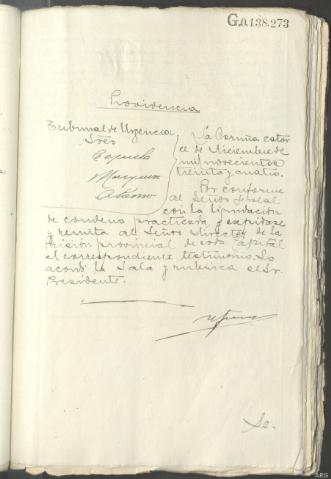 G.0.138.273
Providencia
Tribunal de Urgencia
Sres
La Coruña cator
ce de Diciembre de
mil novecientos
treinta y cuatro.
Por conforme
el Señor Fiscal
con la liquidación
de condena practicada y expídase
y remita al Señor Director de la
Prisión provincial de esta Capital
el correspondiente testimonio. Lo
acordó la Sala y rubrica el Sr.
Presidente.
ARG